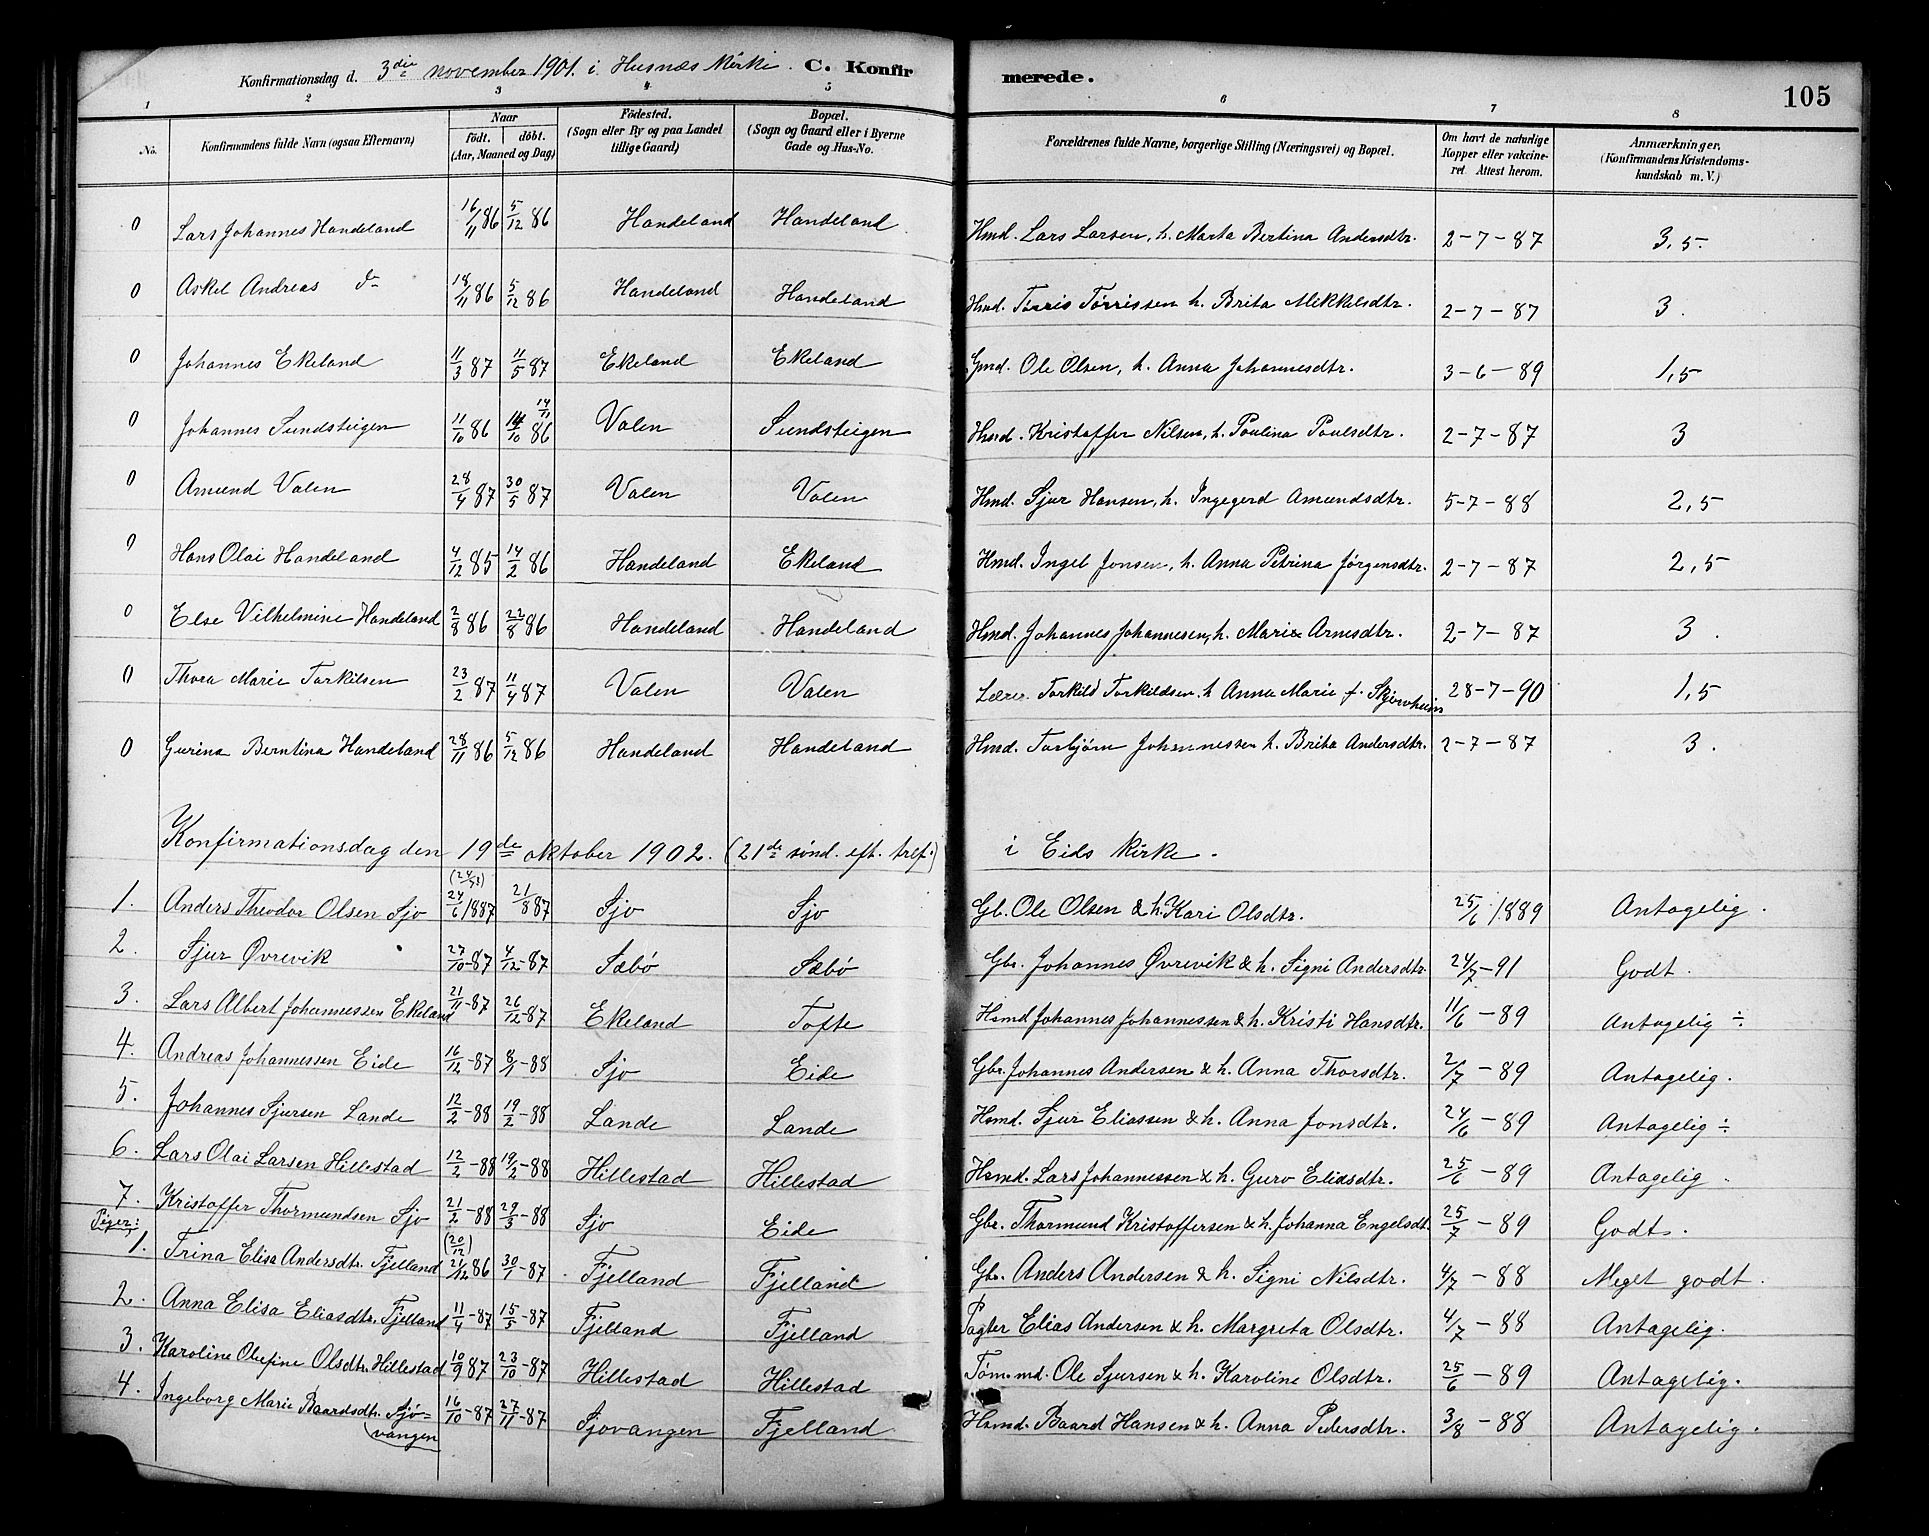 Konfirmationsdag d. 3die november 1901. i Husnæs Kirke. C. Konfirmerede. 105
1 2 3 4 5 6 7 8
No. Konfirmandens fulde Navn (ogsaa Efternavn) Naar født. døbt. (Aar, Maaned og Dag) Födested. (Sogn eller By og paa Landet tillige Gaard) Bopæl. (Sogn og Gaard eller i Byerne Gade og Hus-No. Forældrenes fulde Navne, borgerlige Stilling (Næringsvei) og Bopæl. Om havt de naturlige Kopper eller vakcineret. Attest herom. Anmærkninger. (Konfirmandens Kristendomskundskab m. V.)
0 Lars Johannes Handeland 16/11 86 5/12 86 Handeland Handeland Hmd. Lars Larsen, h. Marta Bertina Andersdtr. 2-7-87 3,5.
0 Askel Andreas do 18/11 86 5/12 86 Handeland Handeland Hmd. Tørris Tørrissen h. Brita Mikkelsdtr. 2-7-87 3.
0 Johannes Ekeland 11/3 87 11/5 87 Ekeland Ekeland Gmd. Ole Olsen, h. Anna Johannesdtr. 3-6-89 1,5
0 Johannes Sundsteigen 11/10 86 14/10 86 14/11 Valen Sundsteigen Hmd. Kristoffer Nilsen, h. Paulina Paulsdtr. 2-7-87 3
0 Amund Valen 28/4 87 30/5 87 Valen Valen Hmd. Sjur Hansen, h. Ingegerd Amundsdtr. 5-7-88 2,5
0 Hans Olai Handeland 4/12 85 14/2 86 Handeland Ekeland Hmd. Ingel Jonsen, h. Anna Petrina Jørgensdtr. 2-7-87 2,5
0 Else Vilhelmine Handeland 2/8 86 22/8 86 Handeland Handeland Hmd. Johannes Johannesen, h. Marie Arnesdtr. 2-7-87 3.
0 Thora Marie Torkilsen 23/2 87 11/4 87 Valen Valen Lærer. Torkild Torkildsen. h Anna Marie f. Skjerheim 28-7-90 1,5
0 Gurina Berntina Handeland 28/11 86 5/12 86 Handeland Handeland Hmd. Torbjørn Johannessen h. Brita Andersdtr. 2-7-87 3.
Konfirmationsdag den 19de oktober 1902. (21de sønd. eft. tref.) i Eids Kirke.
1. Anders Theodor Olsen Sjo 24/6 1887 21/8 87 Sjo Sjo Gl. Ole Olsen & h. Kari Olsdtr. 25/6 1889 Antagelig.
2. Sjur Øvrevik 27/10-87 4/12-87 Sæbø Sæbø Gbr. Johannes Øvrevik & h. Signi Andersdtr. 24/7-91 Godt.
3. Lars Albert Johannessen Ekeland 21/11-87 26/12-87 Ekeland Tofte Hsmd Johannes Johannessen & h. Kristi Hansdtr. 11/6-89 Antagelig ÷
4. Andreas Johannessen Eide 16/12-87 8/1-88 Sjo Eide Gbr. Johannes Andersen & h. Anna Thorsdtr. 2/7-89 Antagelig.
5. Johannes Sjursen Lande 12/2-88 19/2-88 Lande Lande Hsmd. Sjur Eliassen & h. Anna Jonsdtr. 24/6-89 Antagelig ÷
6. Lars Olai Larsen Hillestad 12/2-88 19/2-88 Hillestad Hillestad Hsmd. Lars Johannessen & h. Guro Eliasdtr. 25/6-89 Antagelig.
7. Kristoffer Thormundsen Sjo 21/2-88 29/3-88 Sjo Eide Gbr. Thormund Kristoffersen & h. Johanna Engelsdt. 25/7-89 Godt.
Piger:
1. Trina Elisa Andersdtr. Fjelland (20/12) 21/12 86 30/1-87 Fjelland Fjelland Gbr. Anders Andersen & h. Signi Nilsdtr. 4/7-88 Meget godt.
2. Anna Elisa Eliasdtr. Fjelland 11/4-87 15/5-87 Fjelland Fjelland Pagter Elias Andersen & h. Margreta Olsdtr. 4/7-88 Antagelig.
3. Karoline Olefine Olsdtr. Hillestad 10/9 87 23/10-87 Hillestad Hillestad Tøm.md. Ole Sjursen & h. Karoline Olsdtr. 25/6-89 Antagelig.
4. Ingeborg Marie Baardsdtr. Sjøvangen 16/10-87 27/11-87 Sjovangen Fjelland Hsmd. Baard Hansen & h. Anna Pedersdtr. 3/8-88 Antagelig.